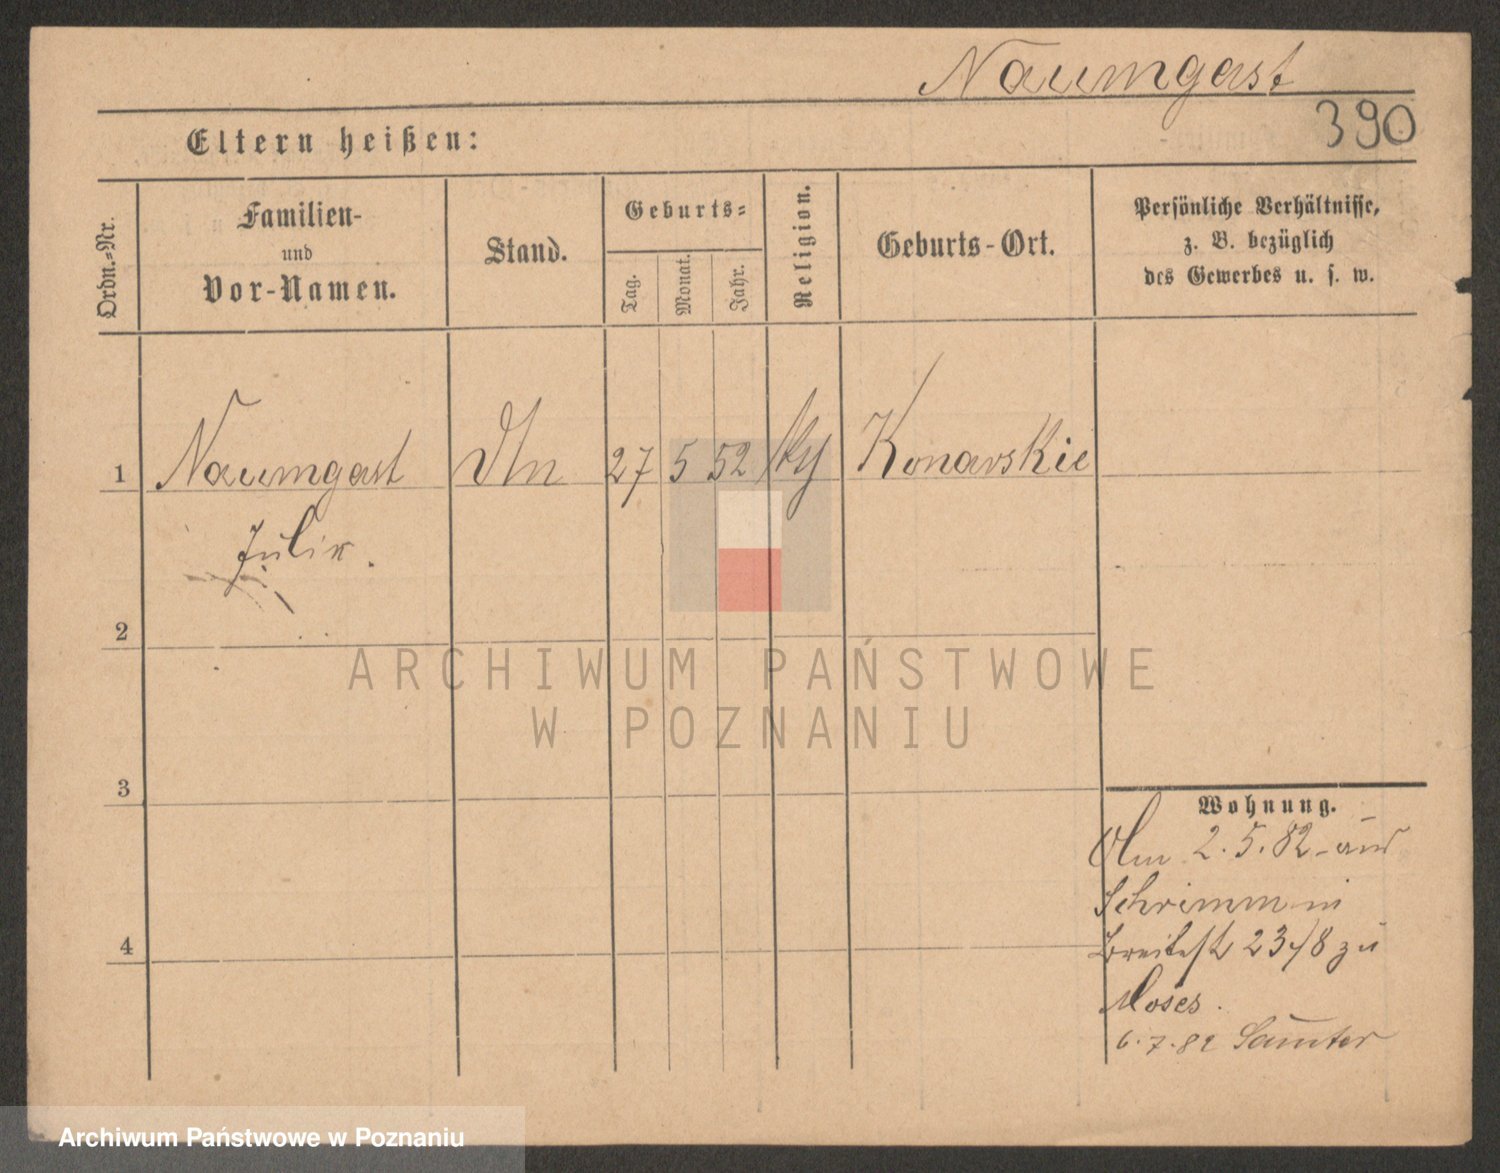 Naumgast
390
Eltern heißen:
Ordn.-Nr.
Familien-
und
Vor-Namen.
Stand.
Geburts-
Tag.
Monat.
Jahr.
Religion.
Geburts-Ort.
Persönliche Verhältnisse,
z. B. bezüglich
des Gewerbes u. s. w.
1
Naumgast
27
5
52
Konarskie
Julia.
2
ARCHIWUM PAŃSTWOWE
W POZNANIU
3
Wohnung.
Am 2.5.82 aus
Schrimm in
Breitestr 23/8 zu
Moses.
6.7.82 Samter
4
Archiwum Państwowe w Poznaniu